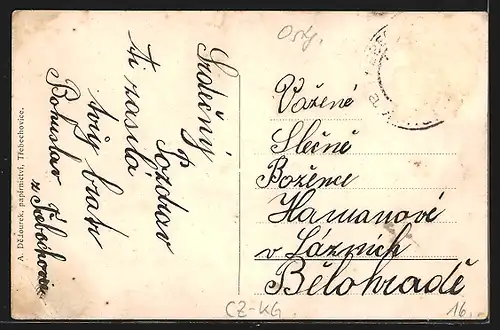 Srdečný
Pozdrav
ti zasílá
tvůj bratr
Bohuslav
z Třebechovic
A. Dědourek, papírnictví, Třebechovice.
Vážené
Slečně
Boženě
Hamanové
v Lázních
Bělohradě
CZ-KG
16.